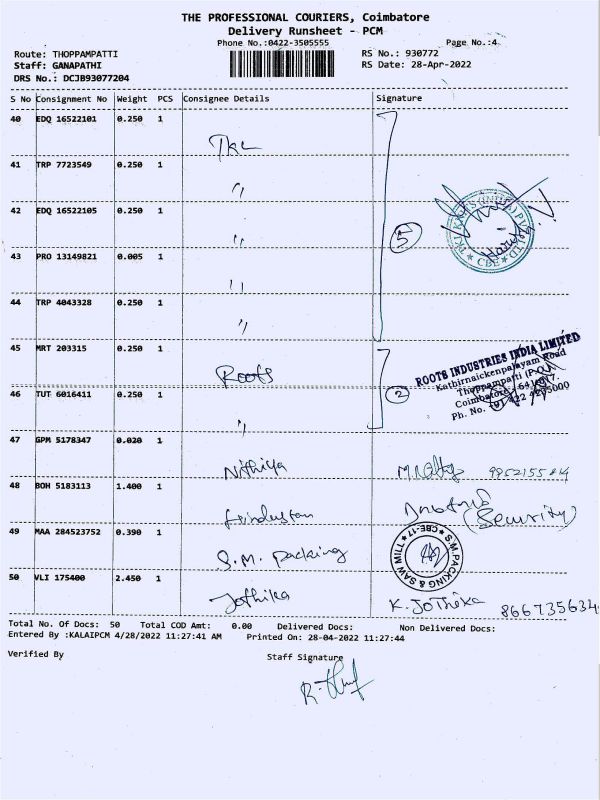 THE PROFESSIONAL COURIERS, Coimbatore
Delivery Runsheet - PCM
Phone No.:0422-3505555 Page No.:4
Route: THOPPAMPATTI RS No.: 930772
Staff: GANAPATHI RS Date: 28-Apr-2022
DRS No.: DCJB93077204
S No Consignment No Weight PCS Consignee Details Signature
40 EDQ 16522101 0.250 1
41 TRP 7723549 0.250 1 "
42 EDQ 16522105 0.250 1 "
5
43 PRO 13149821 0.005 1 "
44 TRP 4043328 0.250 1 "
45 MRT 203315 0.250 1 Roots
ROOTS INDUSTRIES INDIA LIMITED
Kathirnaickenpalayam Road
46 TUT 6016411 0.250 1 " 2
47 GPM 5178347 0.020 1 Nithiya
48 BOH 5183113 1.400 1 Hindustan (Security)
49 MAA 284523752 0.390 1 S.M. packing
S.M.PACKING & SAW MILL CBE-17
50 VLI 175400 2.450 1 Jothika K. JoThika 866735634
Total No. Of Docs: 50 Total COD Amt: 0.00 Delivered Docs: Non Delivered Docs:
Entered By :KALAIPCM 4/28/2022 11:27:41 AM Printed On: 28-04-2022 11:27:44
Verified By Staff Signature